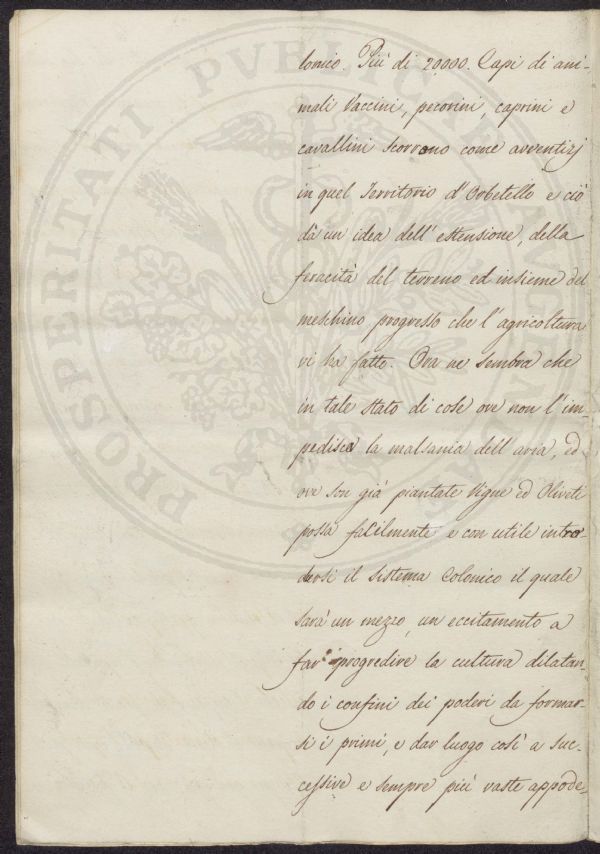 lonico. Più di 20000. Capi di ani-
mali Vaccini, pecorini, caprini e
cavallini scorrono come avventizj
in quel Territorio d'Orbetello e ciò
dà un idea dell'estensione, della
feracità del terreno ed insieme del
meschino progresso che l'agricoltura
vi ha fatto. Ora ne sembra che
in tale stato di cose ove non l'im-
pedisca la malsania dell'aria, ed
ove son già piantate Vigne ed Oliveti
possa facilmente e con utile intro-
dursi il sistema Colonico il quale
sarà un mezzo, un eccitamento a
far progredire la cultura dilatan-
do i confini dei poderi da formar-
si i primi, e dar luogo così a suc-
cessive e sempre più vaste appode-
PROSPERITATI PVBLICAE AVGENDAE